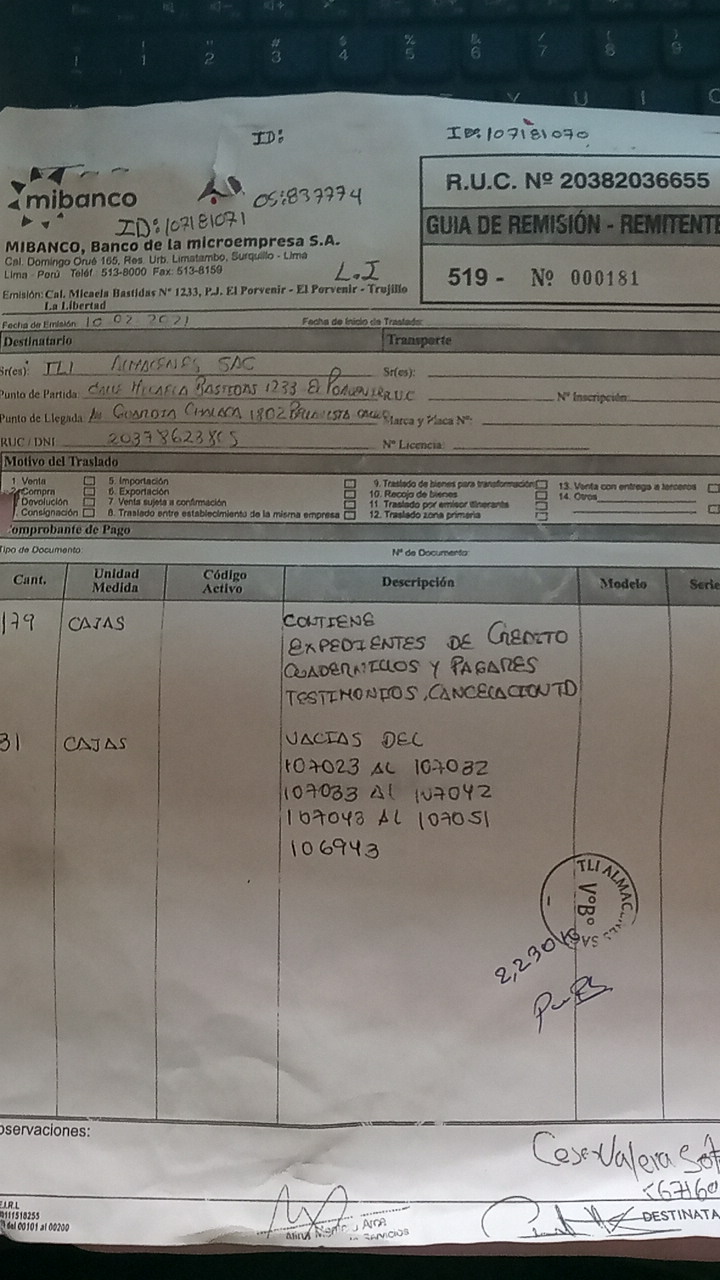 ID:
ID:107181070
mibanco
OS:837774
ID:107181071
R.U.C. Nº 20382036655
GUIA DE REMISIÓN - REMITENTE
519 - Nº 000181
MIBANCO, Banco de la microempresa S.A.
Cal. Domingo Orué 165, Res. Urb. Limatambo, Surquillo - Lima
Lima - Perú Teléf. 513-8000 Fax: 513-8159
L.I
Emisión: Cal. Micaela Bastidas Nº 1233, P.J. El Porvenir - El Porvenir - Trujillo
La Libertad
Fecha de Emisión: 10 02 2021 Fecha de Inicio de Traslado:
Destinatario Transporte
Sr(es): TLI ALMACENES SAC Sr(es):
Punto de Partida: CALLE MICAELA BASTIDAS 1233 El PORVENIR R.U.C Nº Inscripción:
Punto de Llegada: AV GUARDIA CHALACA 1802 BELLAVISTA CALLAO Marca y Placa Nº:
RUC / DNI: Nº Licencia:
Motivo del Traslado
1 Venta 5. Importación 9. Traslado de bienes para transformación 13. Venta con entrega a terceros
Compra 6. Exportación 10. Recojo de bienes 14. Otros
Devolución 7. Venta sujeta a confirmación 11. Traslado por emisor itinerante
. Consignación 8. Traslado entre establecimiento de la misma empresa 12. Traslado zona primaria
omprobante de Pago
Tipo de Documento: Nº de Documento:
Cant. Unidad Medida Código Activo Descripción Modelo Serie
179 CAJAS CONTIENE
EXPEDIENTES DE CREDITO
CUADERNILLOS Y PAGARES
TESTIMONIOS, CANCELACION TD
31 CAJAS VACIAS DEL
107023 AL 107032
107033 Al 107042
107043 AL 107051
106943
TLI ALMACENES SAC
VºBº
2,230 Kg
oservaciones:
Cesar Valera Sot
E.I.R.L
del 00101 al 00200
DESTINATA